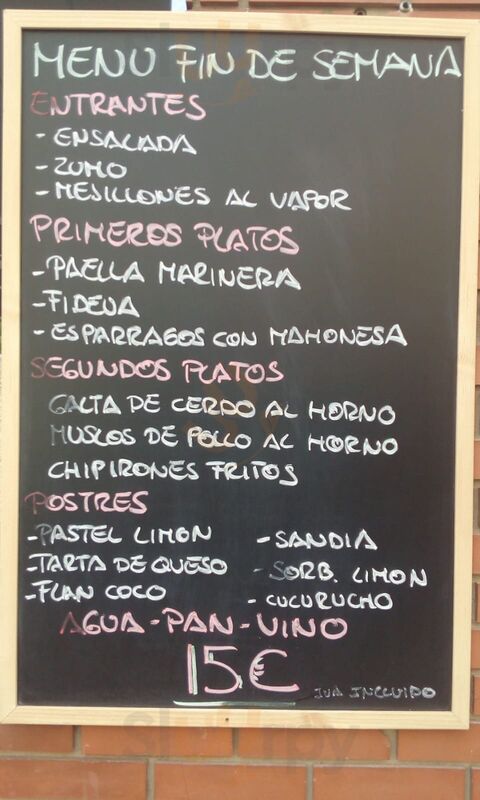 MENU FIN DE SEMANA
ENTRANTES
- ENSALADA
- ZUMO
- MEJILLONES AL VAPOR
PRIMEROS PLATOS
- PAELLA MARINERA
- FIDEUA
- ESPARRAGOS CON MAHONESA
SEGUNDOS PLATOS
GALTA DE CERDO AL HORNO
MUSLOS DE POLLO AL HORNO
CHIPIRONES FRITOS
POSTRES
- PASTEL LIMON - SANDIA
- TARTA DE QUESO - SORB. LIMON
- FLAN COCO - CUCURUCHO
AGUA - PAN - VINO
15€ IVA INCLUIDO
sluurpy